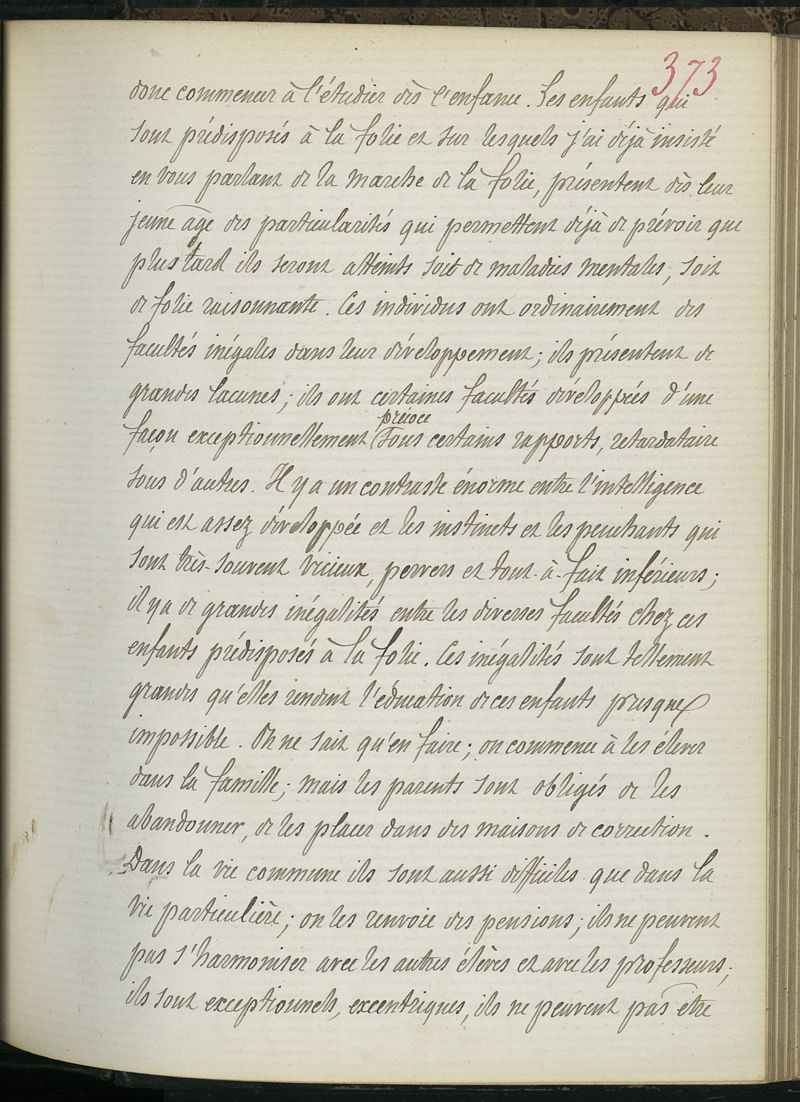 373
donc commencer à l'étudier dès l'enfance. Les enfants qui
sont prédisposés à la folie et sur lesquels j'ai déjà insisté
en vous parlant de la marche de la folie, présentent dès leur
jeune âge des particularités qui permettent déjà de prévoir que
plus tard ils seront atteints soit de maladies mentales, soit
de folie raisonnante. Ces individus ont ordinairement des
facultés inégales dans leur développement; ils présentent de
grandes lacunes; ils ont certaines facultés développées d'une
précoce
façon exceptionnellement (sous certains rapports, retardataire
sous d'autres. Il y a un contraste énorme entre l'intelligence
qui est assez développée et les instincts et les penchants qui
sont très-souvent vicieux, pervers et tout-à-fait inférieurs;
il y a de grandes inégalités entre les diverses facultés chez ces
enfants prédisposés à la folie. Ces inégalités sont tellement
grandes qu'elles rendent l'éducation de ces enfants presque
impossible. On ne sait qu'en faire; on commence à les élever
dans la famille; mais les parents sont obligés de les
abandonner, de les placer dans des maisons de correction.
Dans la vie commune ils sont aussi difficiles que dans la
vie particulière; on les renvoie des pensions; ils ne peuvent
pas s'harmoniser avec les autres élèves et avec les professeurs;
ils sont exceptionnels, excentriques, ils ne peuvent pas être